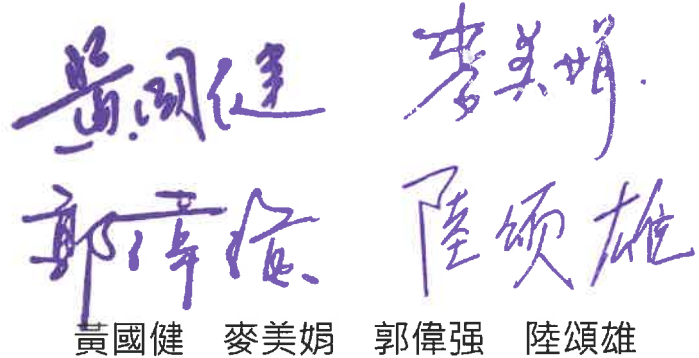 黃國健 麥美娟.
郭偉强 陸頌雄
黃國健 麥美娟 郭偉强 陸頌雄